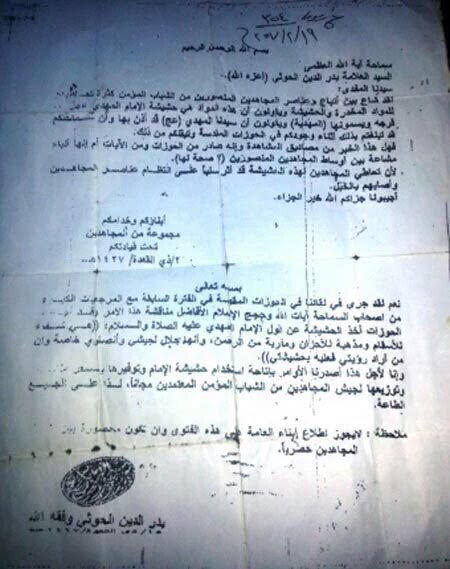 ٣٥٤
٢٠٠٧/٢/١٩
بسم الله الرحمن الرحيم
سماحة آية الله العظمى
السيد العلامة بدر الدين الحوثي (اعزه الله)..
سيدنا المفدى:
لقد شاع بين أتباع وعناصر المجاهدين المنصورين من الشباب المؤمن كثرة
للمواد المخدرة والحشيشة ويقولون أن هذه المواد هي حشيشة الإمام المهدي
فرجه ويسمونها (المهدية) ويقولون أن سيدنا المهدي (عج) قد أذن بها وأن
قد تبلغتم بذلك أثناء وجودكم في الحوزات المقدسة وتيقنتم من ذلك.
فهل هذا الخبر من مصاديق المشاهدة وإنه صادر من الحوزات ومن الآيات أم إنها أنباء
مشاعة بين أوساط المجاهدين المنصورين (لا صحة لها).
لأن تعاطي المجاهدين لهذه الحشيشة قد أثر سلبياً على انتظام عناصر المجاهدين
وأصابهم بالخبل.
أجيبونا جزاكم الله خير الجزاء.
أبناؤكم وخدامكم
مجموعة من المجاهدين
تحت قيادتكم
٢/ذي القعدة/١٤٢٧هـ
بسمه تعالى
نعم لقد جرى في لقائنا في الحوزات المقدسة في الفترة السابقة مع المرجعيات
من أصحاب السماحة آيات الله وحجج الإسلام الأفاضل مناقشة هذا الأمر وقد
الحوزات أخذ الحشيشة عن قول الإمام المهدي عليه الصلاة والسلام: ((هي شفاء
للأسقام ومذهبة للأحزان ومقربة من الرحمن، وانها حلال لجيشي وأنصاري خاصة وإن
من أراد رؤيتي فعليه بحشيشتي)).
وإنا لأجل هذا أصدرنا الأوامر بإتاحة استخدام حشيشة الإمام وتوفيرها
وتوزيعها لجيش المجاهدين من الشباب المؤمن المعتمدين مجاناً، لذا على الجميع
الطاعة.
ملاحظة : لايجوز اطلاع أبناء العامة على هذه الفتوى وان تكون محصورة بين
المجاهدين حصرياً.
بدر الدين الحوثي وفقه الله